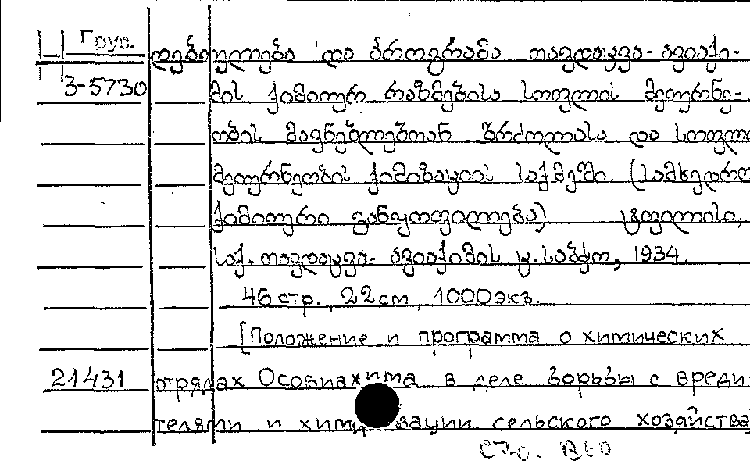 Груз.
დებულება და პროგრამა თავდაცვა-ავიაქი-
3-5730 მის ქიმიური რაზმებისა სოფლის მეურნე-
ობის მავნებლებთან ბრძოლასა და სოფლი
მეურნეობის ქიმიზაციის საქმეში (სამხედრო
ქიმიური განყოფილება), ტფილისი,
საქ. თავდაცვა-ავიაქიმის ც. საბჭო, 1934.
46 стр., 22 cm, 1000 экз.
[Положение и программа о химических
21431 отрядах Осоавиахима в деле борьбы с вреди-
телями и химизации сельского хозяйства